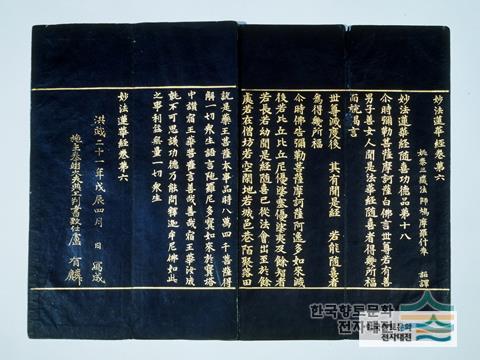 妙法蓮華經卷第六
姚秦三藏法師鳩摩羅什奉 詔譯
妙法蓮華經隨喜功德品第十八
尒時弥勒菩薩摩訶薩白佛言丗尊若有善
男子善女人聞是法華經隨喜者得幾所福
而說偈言
丗尊滅度後 其有聞是經 若能隨喜者
爲得幾所福
尒時佛告弥勒菩薩摩訶薩阿逸多如來滅
後若比丘比丘尼優婆塞優婆夷及餘智者
若長若幼聞是經隨喜已從法會出至於餘
處若在僧坊若空閑地若城邑巷陌聚落田
說是藥王菩薩本事品時八萬四千菩薩得
解一切衆生語言陁羅尼多寶如來於寶塔
中讃宿王華菩薩言善哉善哉宿王華汝成
就不可思議功德乃能問釋迦牟尼佛如此
之事利益無量一切衆生
妙法蓮華經卷第六
洪武二十一年戊辰四月 日 寫成
施主奉翊大夫典工判書致仕盧 有麟
한국향토문화
전자대전
한국향토문화
전자대전